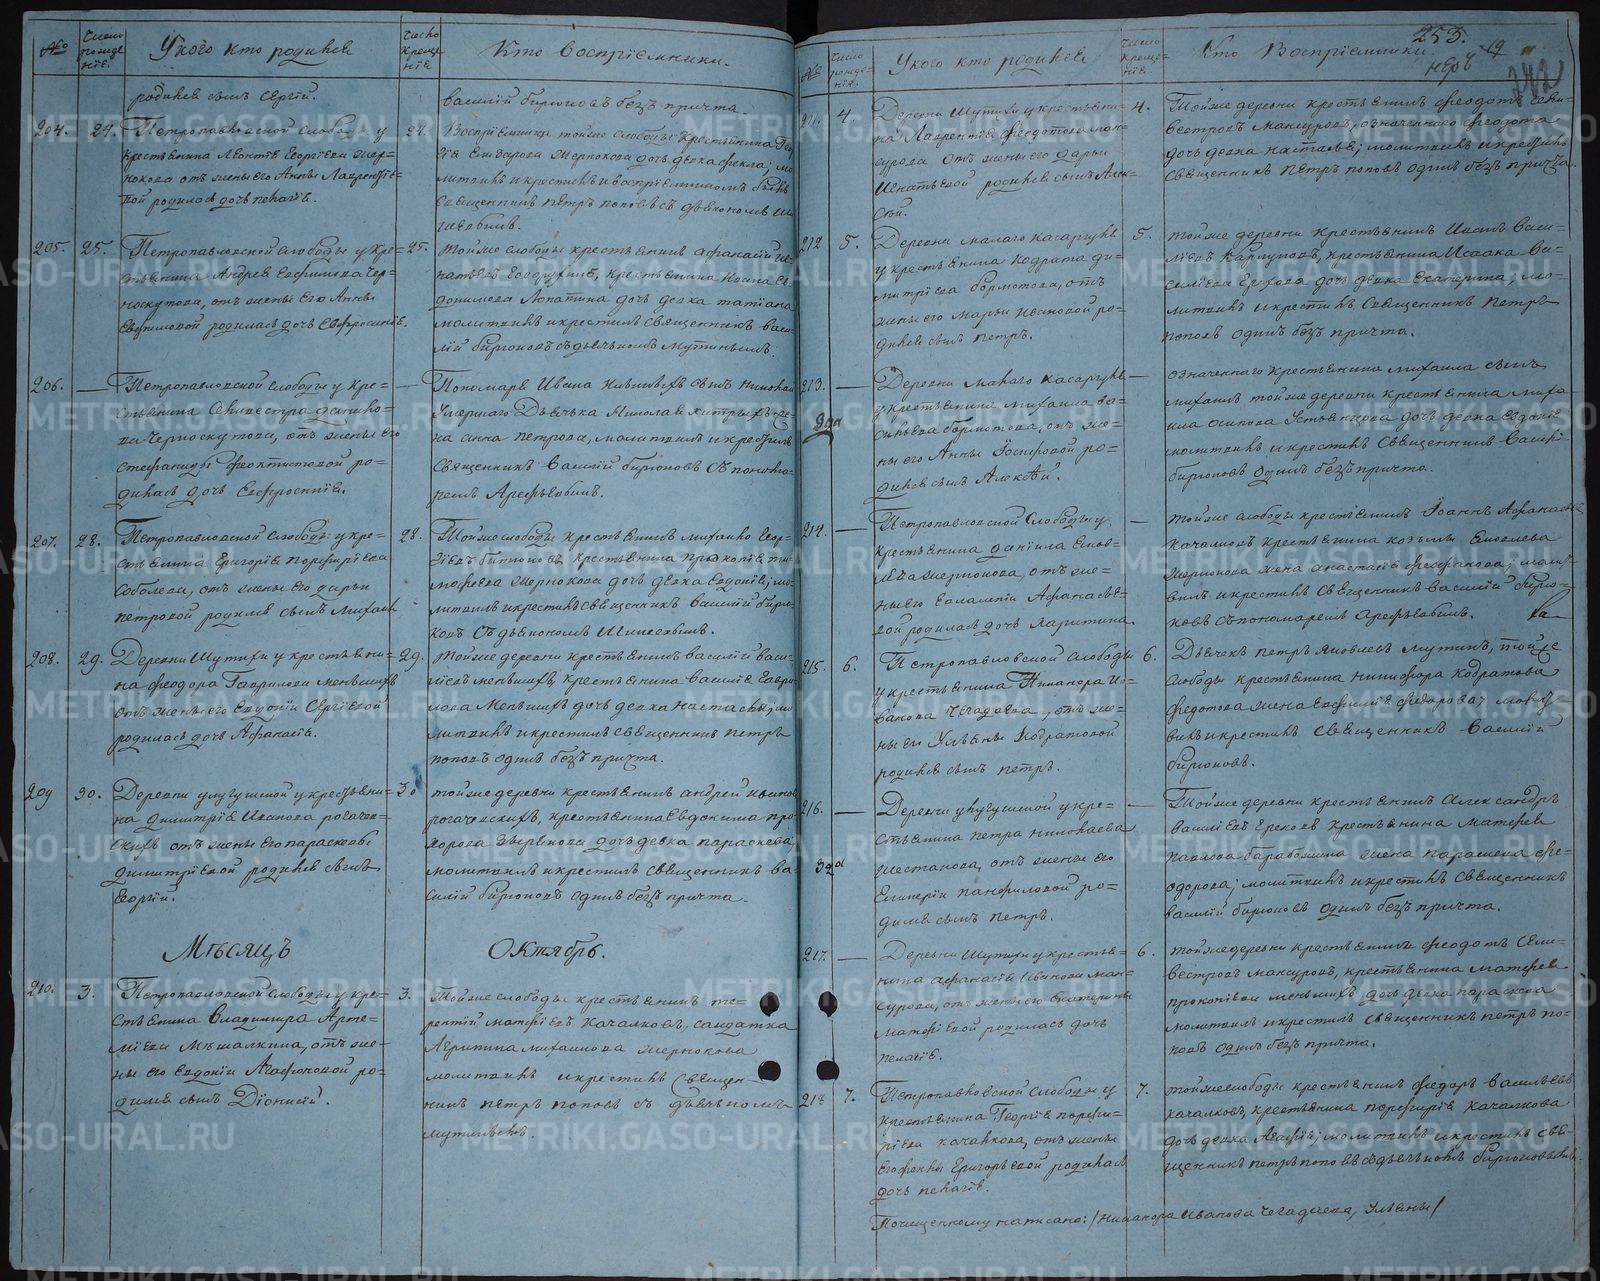 №
Число рожде=
нiе.
У кого кто родился
Число Креще
нiе.
Кто Воспрiемники.
родился сынъ Сергiй.
василiй бирюковъ безъ причта
204.
24.
Петропавловской Слободы у
крестьянина Леонтiя Георгiева Жер=
нокова отъ жены его Анны Лаврентье=
вой родилась дочь пелагiя.
24.
литвилъ и крестилъ и воспрiемникомъ былъ
Священникъ Петръ поповъ съ дьякономъ
205.
25.
Петропавловской Слободы у кре=
стьянина Андрея Евфимова Чер=
носкутова, отъ жены его Анны
Евфимовой родилась дочь Евфросинiя.
25.
тойже слободы крестьянинъ афанасiй
Лопатина дочь девка татiана
молитвилъ и крестилъ священникъ васи=
лiй бирюковъ съ дьячкомъ Мутинымъ.
206.
Петропавловской слободы у кре=
стьянина Селивестра данило=
ва Черноскутова, отъ жены его
стефаниды феоктистовой ро=
дилась дочь Евфросинiя.
Пономаря Ивана
умершаго Дьячка Николая хитрыхъ же=
на анна петрова, молитвилъ и крестилъ
Священникъ василiй бирюковъ съ понома=
ремъ Арефьевымъ.
207.
28.
Петропавловской слободы у кре=
стьянина Григорiя Порфирiева
Соболева, отъ жены его дарьи
петровой родился сынъ Михаилъ
28.
Тойже слободы крестьянинъ михайло Геор=
гiевъ крестьянина прокопiя ти=
мофеева жернокова дочь девка Евдокiя; мо=
литвилъ и крестилъ священникъ василiй бирю=
ковъ съ дьякономъ
208.
29.
Деревни Шутихи у крестьяни=
на феодора Гаврилова меньшихъ
отъ жены его Евдокiи Сергiевой
родилась дочь Афанасiя.
29.
тойже деревни крестьянинъ василiй васи=
лiевъ меньшихъ, крестьянина василiя Гаври=
лова Меньшихъ дочь девка настасья; мо
литвилъ и крестилъ священникъ петръ
поповъ одинъ безъ причта.
209
30.
Деревни улугушской у крестьяни=
на димитрiя Иванова рогачев=
скихъ отъ жены его парасковьи
димитрiевой родился сынъ
Георгiй.
30
тойже деревни крестьянинъ андрей ивановъ
рогачевскихъ, крестьянина Евдокима про=
хорова Зырянова дочь девка параскева,
молитвилъ и крестилъ священникъ ва
силiй бирюковъ одинъ безъ причта.
Мѣсяцъ
Октябрь.
210.
3.
Петропавловской Слободы у кре=
стьянина Владимира Арте=
мiева Мѣшалкина, отъ же=
ны его Евдокiи Агафоновой ро=
дился сынъ Дiонисiй.
3.
тойже слободы крестьянинъ те=
рентiй матфiевъ Качалковъ, салдатка
Агрипина михайлова жернокова
молитвилъ и крестилъ священ=
никъ петръ поповъ съ дьячкомъ
мутинымъ.
253.
№
Число рожде=
нiе.
У кого кто родился
Число креще=
нiе.
Кто Воспрiемники.
4.
Деревни Шутихи у крестьяни=
на Лаврентiя феодотова ман=
сурова отъ жены его дарьи
Игнатьевой родился сынъ Алек=
сей.
4.
Тойже деревни крестьянинъ феодотъ Сели=
вестровъ Мансуровъ, означеннаго феодота
дочь девка настасья; молитвилъ и крестилъ
священникъ Петръ поповъ одинъ безъ причта.
212
5.
Деревни малаго касаргуля
у крестьянина Кодрата ди=
митрiева бормотова, отъ
жены его марьи Ивановой ро=
дился сынъ петръ.
5.
тойже деревни крестьянинъ Иванъ васи=
лiевъ Карпуновъ, крестьянина Исаака ва=
силiева Ерихова дочь девка Екатерина; мо=
литвилъ и крестилъ Священникъ Петръ
поповъ одинъ безъ причта.
213.
Деревни малаго касаргуля
у крестьянина михаила ва=
сильева бормотова, отъ же=
ны его Анны Iосифовой ро=
дился сынъ Алексѣй.
означеннаго крестьянина михаила сынъ
михаилъ тойже деревни крестьянина миха
ила осипова Устьянцова дочь девка Евдокiя
молитвилъ и крестилъ Священникъ Василiй
бирюковъ одинъ безъ причта.
214.
Петропавловской Слободы у
крестьянина данiила
жернокова, отъ же=
ны его Евлампiи Афанасье=
вой родилась дочь Харитина.
тойже слободы крестьянинъ Iоаннъ Афанасьевъ
Качалковъ крестьянина козьмы
жернокова жена анастасiя феофанова; молит
вилъ и крестилъ Священникъ василiй бирю=
ковъ съ пономаремъ Арефьевымъ.
215.
6.
Петропавловской слободы
у крестьянина Никанора И=
ванова Чегадаева, отъ же=
ны его Ульяны Кодратовой
родился сынъ петръ.
6.
Дьячекъ петръ Яковлевъ Мутинъ, тойже
слободы крестьянина никифора Кодратова
федотова жена Евфимiя федорова; молит
вилъ и крестилъ священникъ василiй
бирюковъ.
216.
Деревни улугушской у кре=
стьянина петра николаева
шестакова, отъ жены его
Гликерiи панфиловой ро=
дился сынъ Петръ.
Тойже деревни крестьянинъ Александръ
василiевъ крестьянина матфея
павлова барабошина жена параскева фе=
одорова; молитвилъ и крестилъ Священникъ
василiй бирюковъ одинъ безъ причта.
217.
Деревни Шутихи у крестья=
нина афанасiя Иванова Ман=
сурова, отъ жены его Екатерины
матфiевой родилась дочь
пелагiя.
6.
тойже деревни крестьянинъ феодотъ Сели=
вестровъ мансуровъ, крестьянина матфея
прокопiева меньшихъ дочь девка параскева
молитвилъ и крестилъ священникъ петръ по=
повъ одинъ безъ причта.
218
7.
Петропавловской слободы у
крестьянина Георгiя порфи=
рiева качалкова, отъ жены
его феклы Григорьевой родилась
дочь пелагiя.
7.
тойже слободы крестьянинъ федоръ васильевъ
качалковъ, крестьянина порфирiя качалкова
дочь девка Агафiя; молитвилъ и крестилъ свя=
щенникъ петръ поповъ съ дьячкомъ
Почищенному написано: /Никанора Иванова Чегадаева, Ульяны/
METRIKI.GASO-URAL.RU